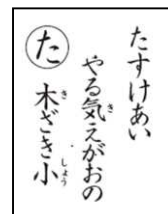 たすけあい
やる気えがおの
木ざき小
た